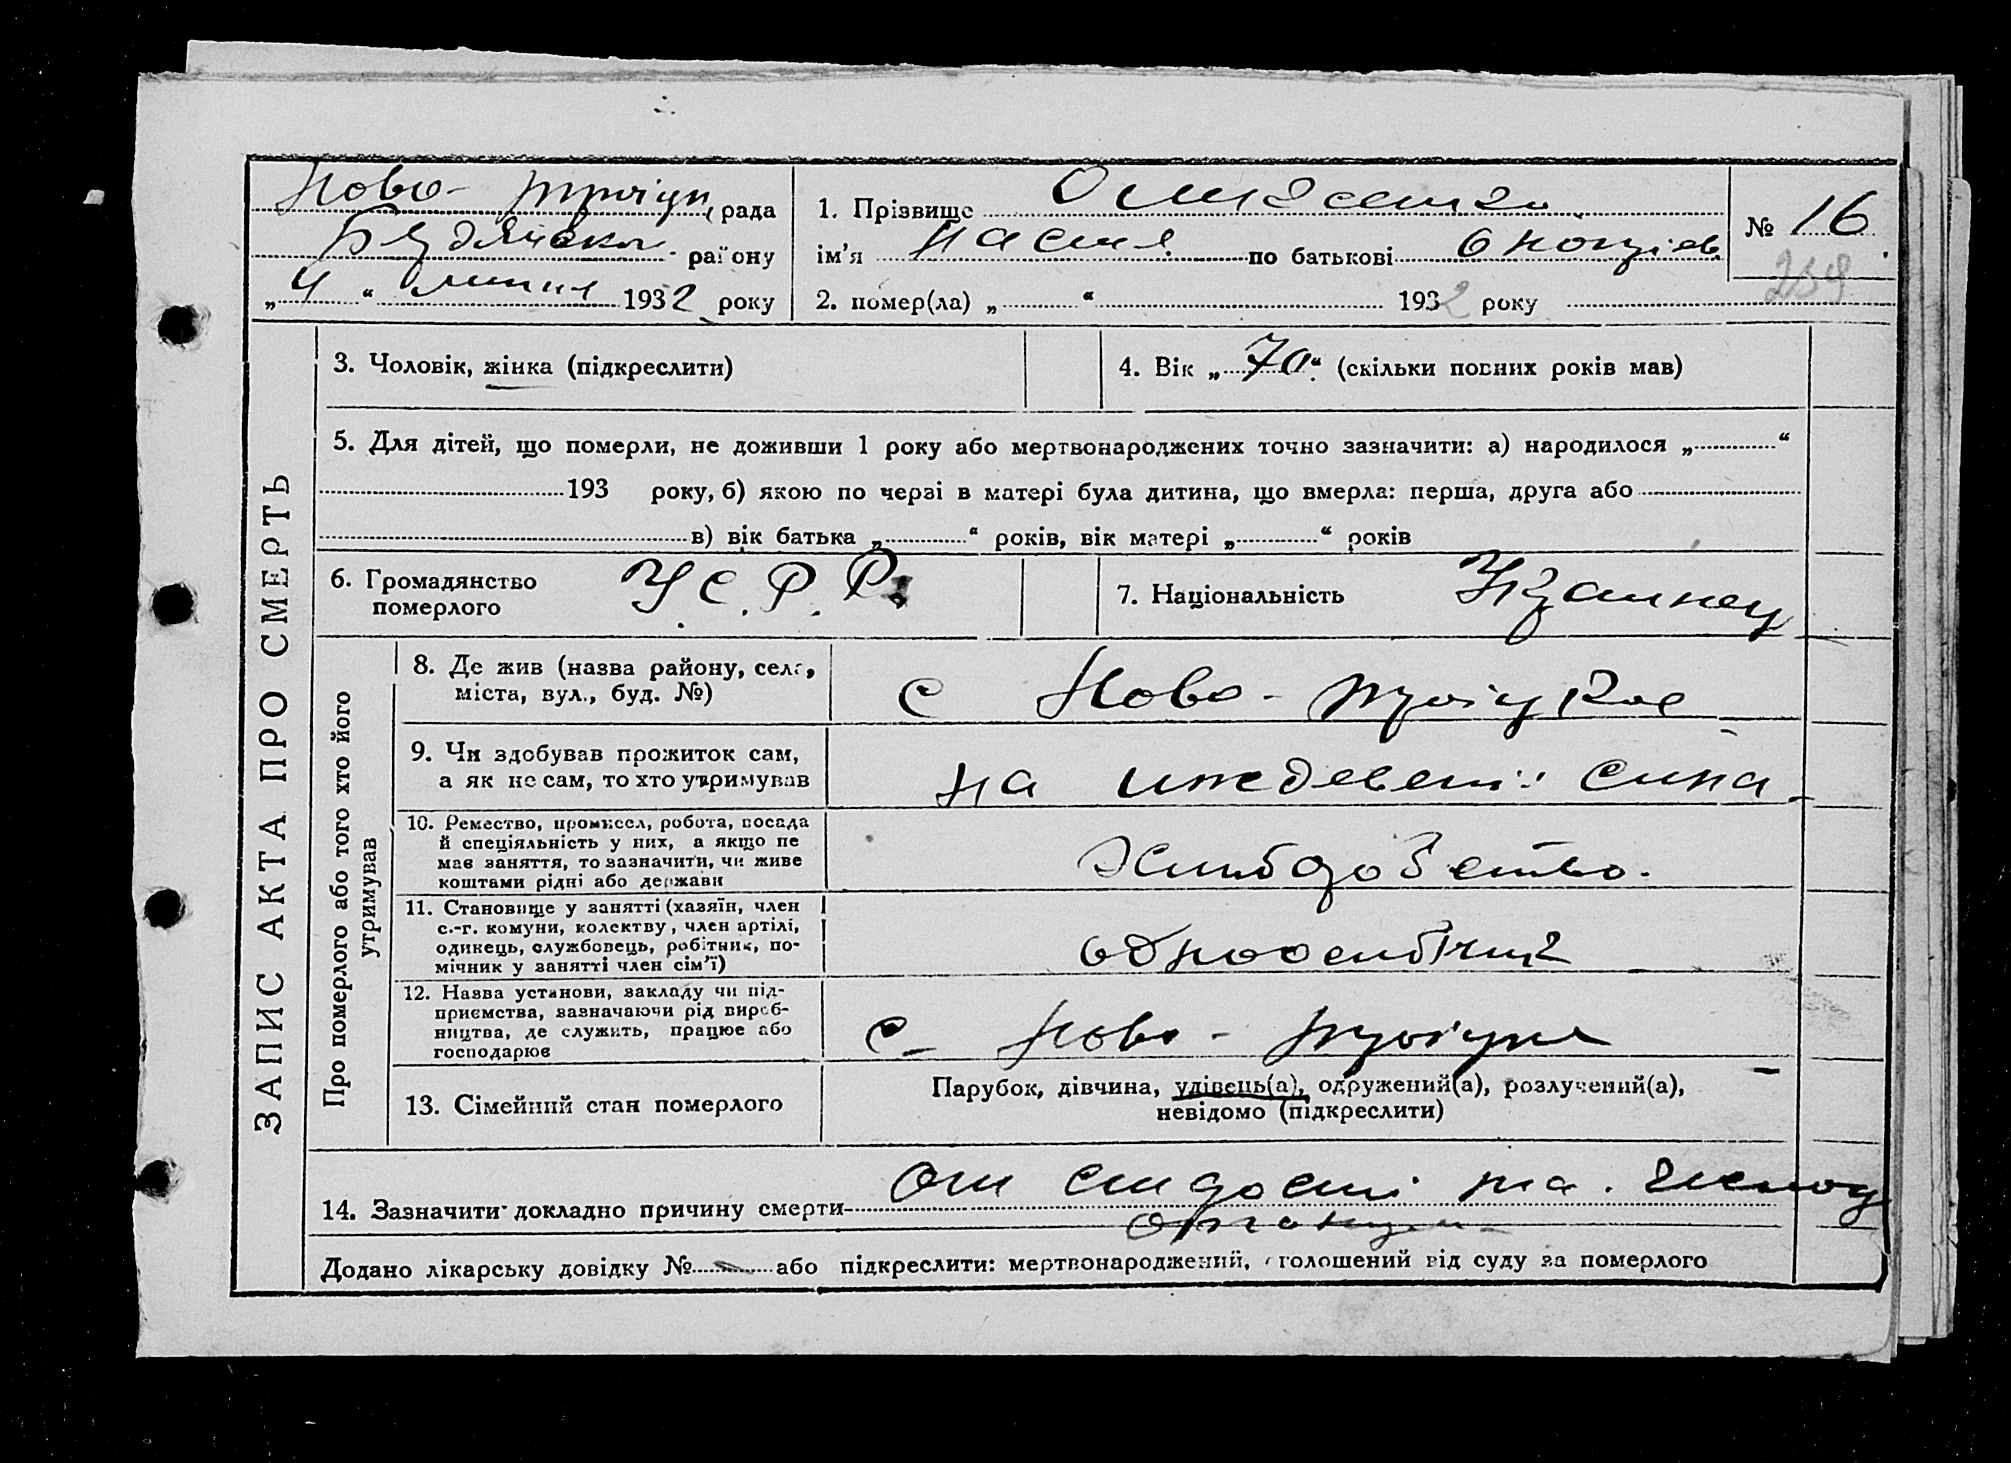 Ново- троїцк, рада
району
„ 4 “ липня 1932 року
1. Прізвище
ім’я Настя по батькові
2. помер(ла) „ “ 1932 року
№ 16
259
ЗАПИС АКТА ПРО СМЕРТЬ
3. Чоловік, жінка (підкреслити)
4. Вік „ 70 “ (скільки повних років мав)
5. Для дітей, що померли, не доживши 1 року або мертвонароджених точно зазначити: а) народилося „ “
193 року, б) якою по черзі в матері була дитина, що вмерла: перша, друга або
в) вік батька „ “ років, вік матері „ “ років
6. Громадянство
померлого
У С. Р. Р.
7. Національність
Українец
Про померлого або того хто його
утримував
8. Де жив (назва району, села,
міста, вул., буд. №)
с Ново- троїцкое
9. Чи здобував прожиток сам,
а як не сам, то хто утримував
на иждевені сина
10. Ремество, промисел, робота, посада
й спеціяльність у них, а якщо не
має заняття, то зазначити, чи живе
коштами рідні або держави
Хліборобство.
11. Становище у занятті (хазяїн, член
с.-г. комуни, колективу, член артілі,
одинець, службовець, робітник, по-
мічник у занятті член сім’ї)
12. Назва установи, закладу чи під-
приємства, зазначаючи рід вироб-
ництва, де служить, працює або
господарює
с- Ново-
13. Сімейний стан померлого
Парубок, дівчина, удівець(а), одружений(а), розлучений(а),
невідомо (підкреслити)
14. Зазначити докладно причину смерти- От старості та
Додано лікарську довідку № або підкреслити: мертвонароджений, оголошений від суду за померлого